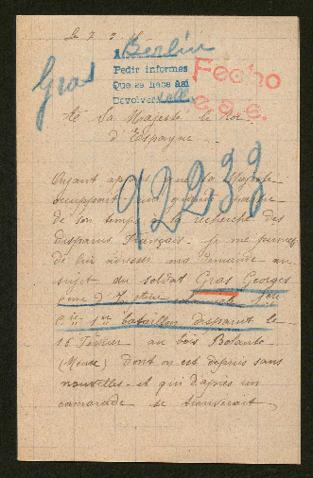 Berlin
Pedir informes
Que se hace así
Devolver
Gras
Fecho
e.a.e.
A Sa Majesté le Roi
d'Espagne
92238
Ayant appris que Sa Majesté
de son temps à la recherche des
disparus Français. je me permets
de lui adresser ma demande au
sujet du soldat Gras Georges
1er bataillon disparut le
16 Février au bois Bolante
(Meuse) dont on est depuis sans
nouvelles et qui d'après un
camarade se trouverait